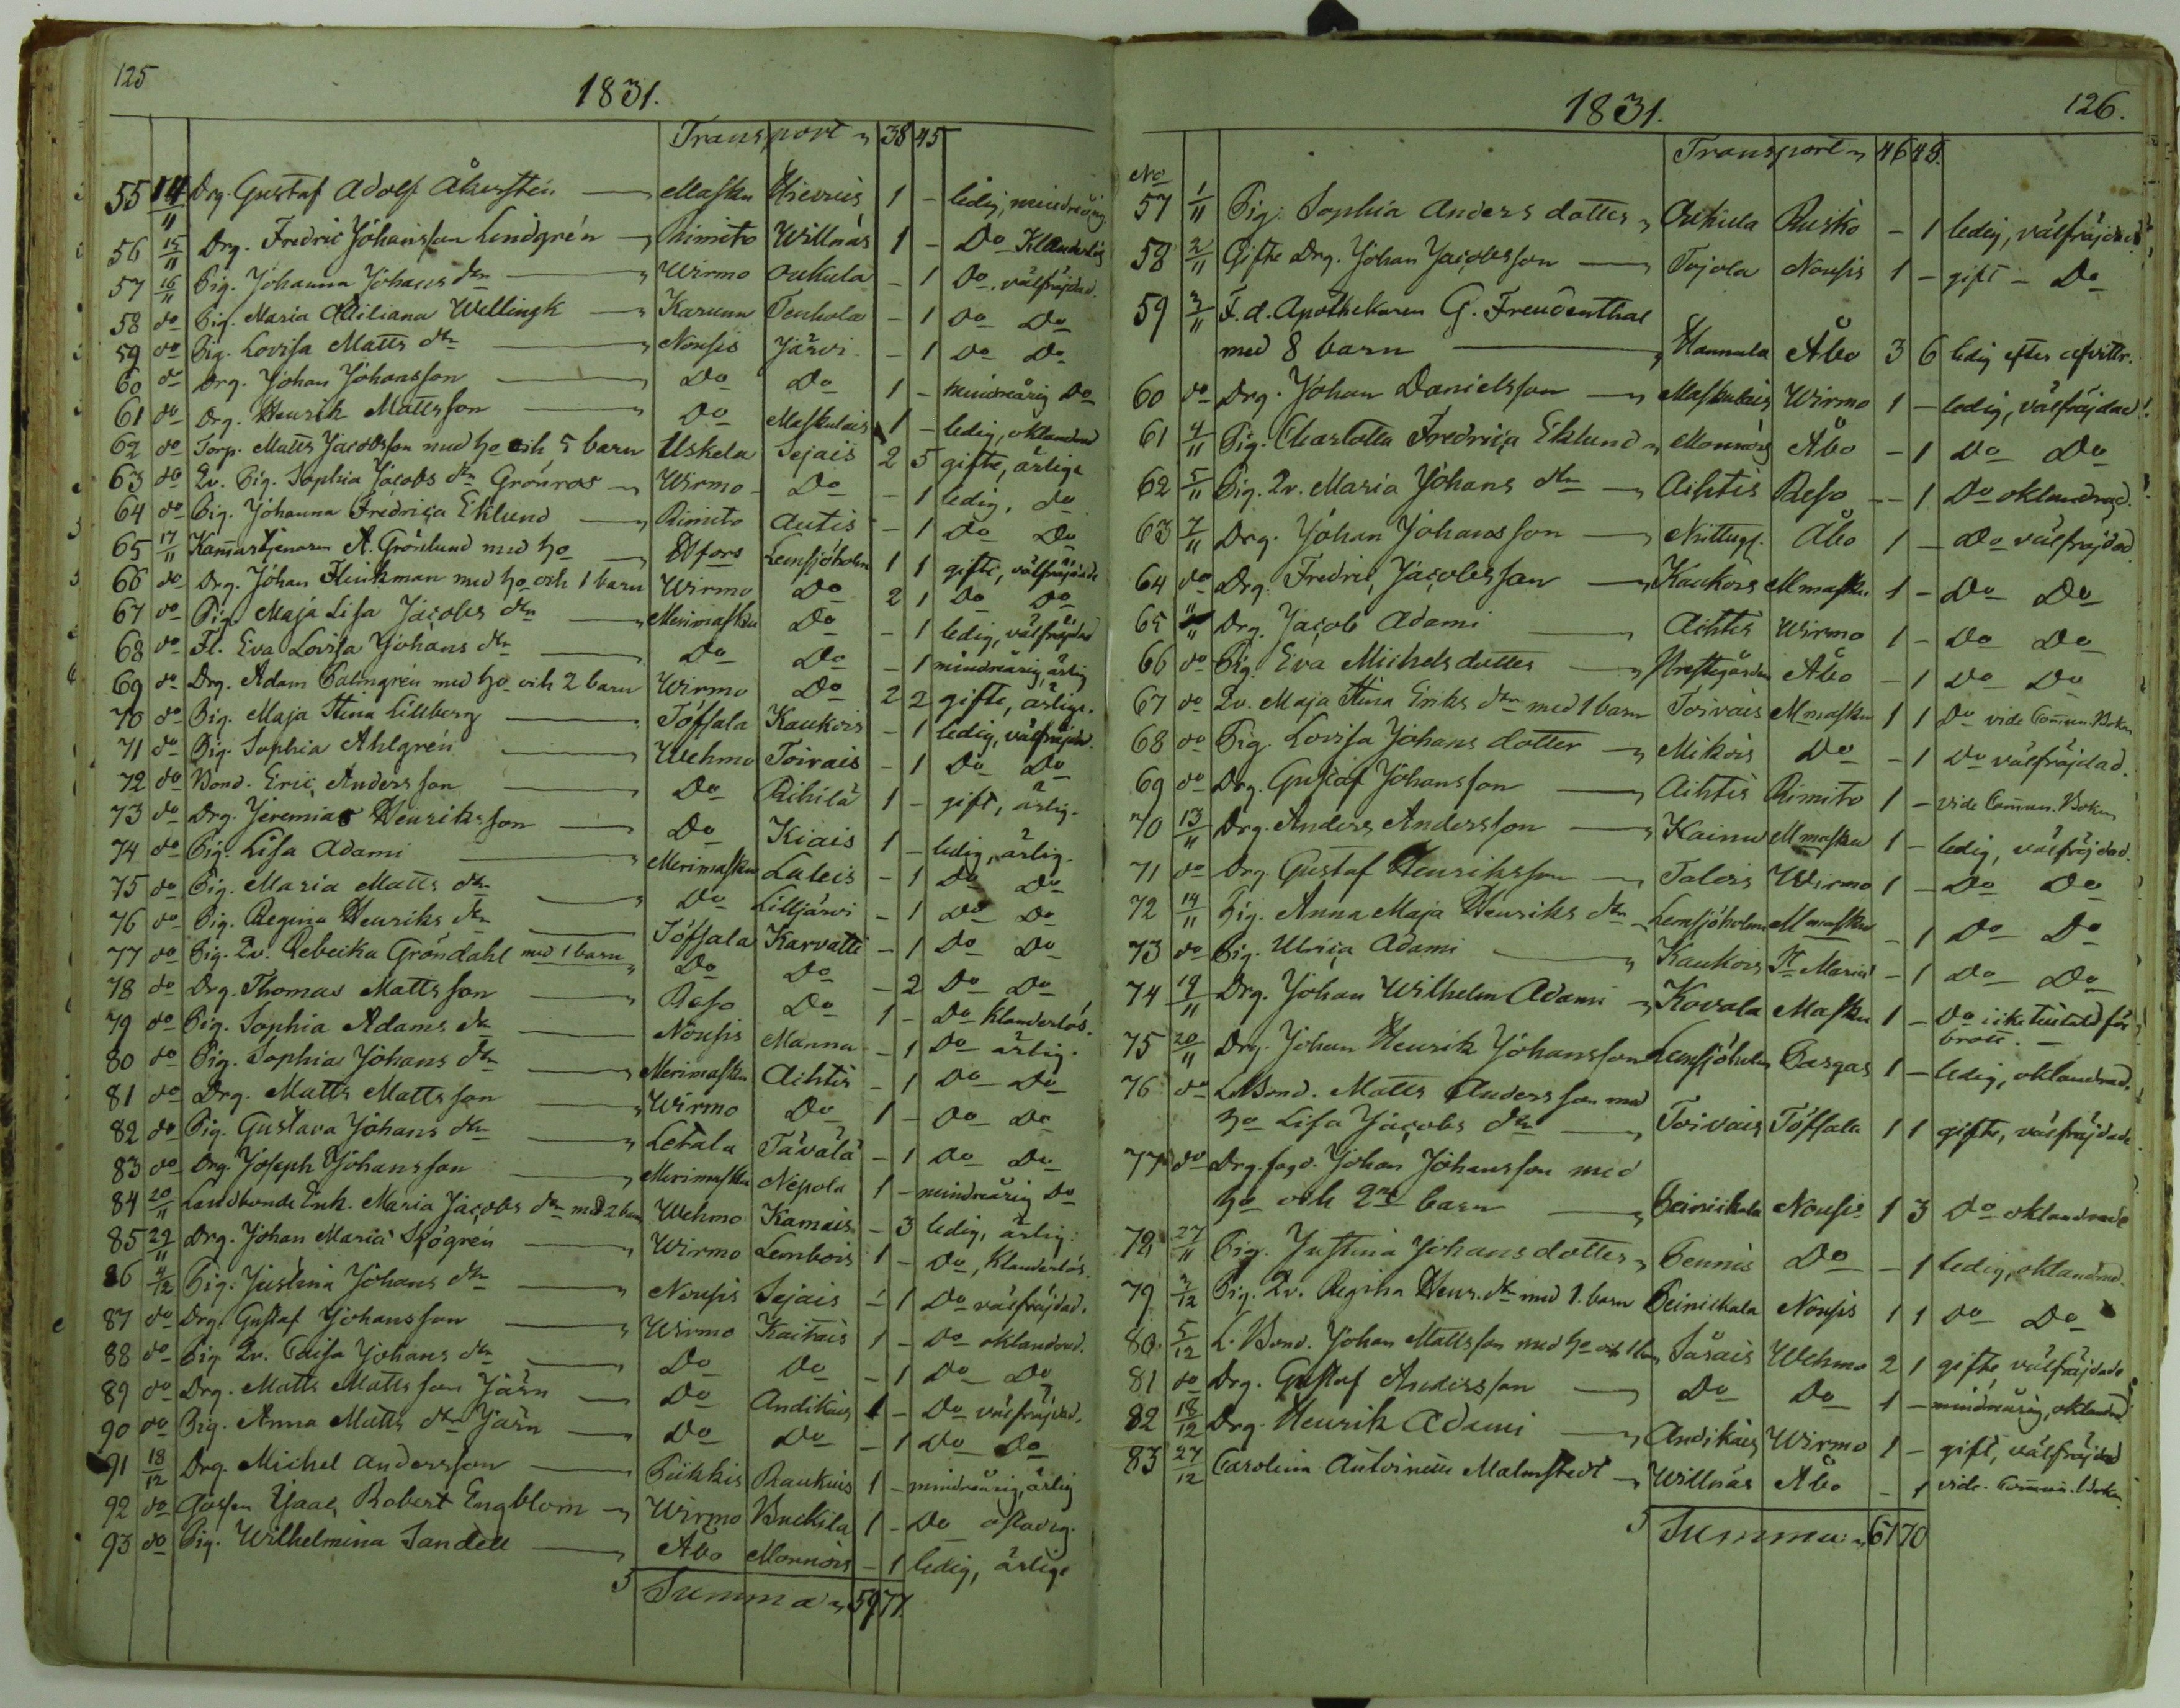 125
1831.
Transport 38 45
55 14/11 Drg. Gustaf Adolf Åkersten Masku Hievois 1 - ledig, mindreårig
56 15/11 Drg. Fredric Johansson Lindgrén Rimito Willnäs 1 - Do Klanderlös
57 16/11 Pig. Johanna Johans dtr Wirmo Ohkula - 1 Do. välfräjdad.
58 do Pig. Maria Wellingk Karuna Tenhola - 1 Do Do
59 do Pig. Lovisa Matts dtr Nousis Järvi - 1 Do Do
60 do Drg. Johan Johansson Do Do 1 - mindreårig Do
61 do Drg. Henrik Mattsson Do Maskulais 1 - ledig, oklandrad
62 do Torp. Matts Jacobsson med ho och 5 barn Uskela Sejais 2 5 gifte, ärlige
63 do Qv. Pig. Sophia Jacobs dtr Grönros Wirmo Do - 1 ledig, do
64 do Pig. Johanna Fredrica Eklund Rimito Autis - 1 Do Do
65 17/11 Kam̄artjenaren A. Grönlund med ho Hfors Lemsjöholm 1 1 gifte, välfräjdade
66 do Drg. Johan Flinkman med ho och 1 barn Wirmo Do 2 1 Do Do
67 do Pig. Maja Lisa Jacobs dtr Merimasku Do - 1 ledig, välfräjdad
68 do Fl. Eva Lovisa Johans dtr Do Do - 1 mindreårig, ärlig
69 do Drg. Adam Palmgrén med ho och 2 barn Wirmo Do 2 2 gifte, ärlige.
70 do Pig. Maja Stina Lillberg Töfsala Kaukois - 1 ledig, välfräjd.
71 do Pig. Sophia Ahlgrén Wehmo Toivais - 1 Do Do
72 do Bond. Eric Andersson Do Rihilä 1 - gift, ärlig.
73 do Drg. Jeremias Henriksson Do Kiais 1 - ledig, ärlig.
74 do Pig. Lisa Adami Merimasku Laleis - 1 Do Do
75 do Pig. Maria Matts dtr Do Lilljärvi - 1 Do Do
76 do Pig. Regina Henriks dtr Töfsala Karvatti - 1 Do Do
77 do Pig. Qv. Rebecka Gröndahl med 1 barn Do Do - 2 Do Do
78 do Drg. Thomas Mattsson Reso Do 1 - Do Klanderlös.
79 do Pig. Sophia Adams dtr Nousis Manna - 1 Do ärlig.
80 do Pig. Sophia Johans dtr Merimasku Aihtis - 1 Do Do
81 do Drg. Matts Mattsson Wirmo Do 1 - Do Do
82 do Pig. Gustava Johans dtr Letala Tävälä - 1 Do Do
83 do Drg. Joseph Johansson Merimasku Nepola 1 - mindreårig Do
84 20/11 Landbonde Enk. Maria Jacobs dtr med 2 barn Wehmo Kamais - 3 ledig, ärlig.
85 29/11 Drg. Johan Maria Sjögrén Wirmo Lembois 1 - Do, Klanderlös.
86 4/12 Pig. Justina Johans dtr Nousis Sejais - 1 Do välfräjdad.
87 do Drg. Gustaf Johansson Wirmo Kaitais 1 - Do oklandrad.
88 do Pig. Qv. Caisa Johans dtr Do Do - 1 Do Do
89 do Drg. Matts Mattsson Järn Do Andikais 1 - Do välfräjdad.
90 do Pig. Anna Matts dtr Järn Do Do - 1 Do Do
91 18/12 Drg. Michel Andersson Pikkis Raukuis 1 - mindreårig, ärlig
92 do Gossen Isaac Robert Engblom Wirmo 1 - Do
93 do Pig. Wilhelmina Sandell Åbo Monnois - 1 ledig, ärlige
Summa 59 77.
126.
1831.
Transport 46 48.
No
57 1/11 Pig. Sophia Anders dotter Ohkula Rusko - 1 ledig, välfräjdad
58 2/11 Gifte Drg. Johan Jacobsson Tojola Nousis 1 - gift - Do
59 3/11 F. d. Apothekaren G. Freudenthal
med 8 barn Hannula Åbo 3 6 ledig efter
60 do Drg. Johan Danielsson Maskulais Wirmo 1 - ledig, välfräjdad.
61 4/11 Pig. Charlotta Fredrica Eklund Monnois Åbo - 1 Do Do
62 5/11 Pig. Qv. Maria Johans dtr Aihtis Reso - 1 Do oklandrad.
63 7/11 Drg. Johan Johansson Nuttugl. Åbo 1 - Do välfräjdad
64 do Drg. Fredric Jacobsson Kaukois Mmasku 1 - Do Do
65 Drg. Jacob Adami Aihtis Wirmo 1 - Do Do
66 do Pig. Eva Michelsdotter Prestegården Åbo - 1 Do Do
67 do Qv. Maja Stina Eriks dtr med 1 barn Toivais Mmasku 1 1 Do vide Com̄un. Boken
68 do Pig. Lovisa Johans dotter Mikois Do - 1 Do välfräjdad.
69 do Drg. Gustaf Johansson Aihtis Rimito 1 - vide Com̄un. Boken
70 13/11 Drg. Anders Andersson Kainu Mmasku 1 - ledig, välfräjdad.
71 do Drg. Gustaf Henriksson Talois Wirmo 1 - Do Do
72 14/11 Pig. Anna Maja Henriks dtr Lemsjöholm Mmasku - 1 Do Do
73 do Pig. Ulrica Adami Kaukois St Marie - 1 Do Do
74 19/11 Drg. Johan Wilhelm Adami Kovala Masku 1 - Do icke tilltald för
brott.
75 20/11 Drg. Johan Henrik Johansson Lemsjöholm Pargas 1 - ledig, oklandrad.
76 do L. Bond. Matts Andersson med
ho Lisa Jacobs dtr Toivais Töfsala 1 1 gifte, välfräjdade
77 do Drg. fogd. Johan Johansson med
ho och 2ne barn Peinikala Nousis 1 3 Do oklandrade
78 27/11 Pig. Justina Johansdotter Pennis Do - 1 ledig, oklandrad.
79 3/12 Pig. Qv. Regina Henr. dtr med 1. barn Peinikala Nousis 1 1 Do Do
80 5/12 L. Bond. Johan Mattsson med ho och 1 barn Särais Wehmo 2 1 gifte välfräjdade
81 do Drg. Gustaf Andersson Do Do 1 - mindreårig, oklandrad
82 18/12 Drg. Henrik Adami Andikais Wirmo 1 - gift, välfräjdad
83 27/12 Carolina Antoinette Malmstedt Willnäs Åbo - 1 vide. Com̄un. Boken
Summa 61 70